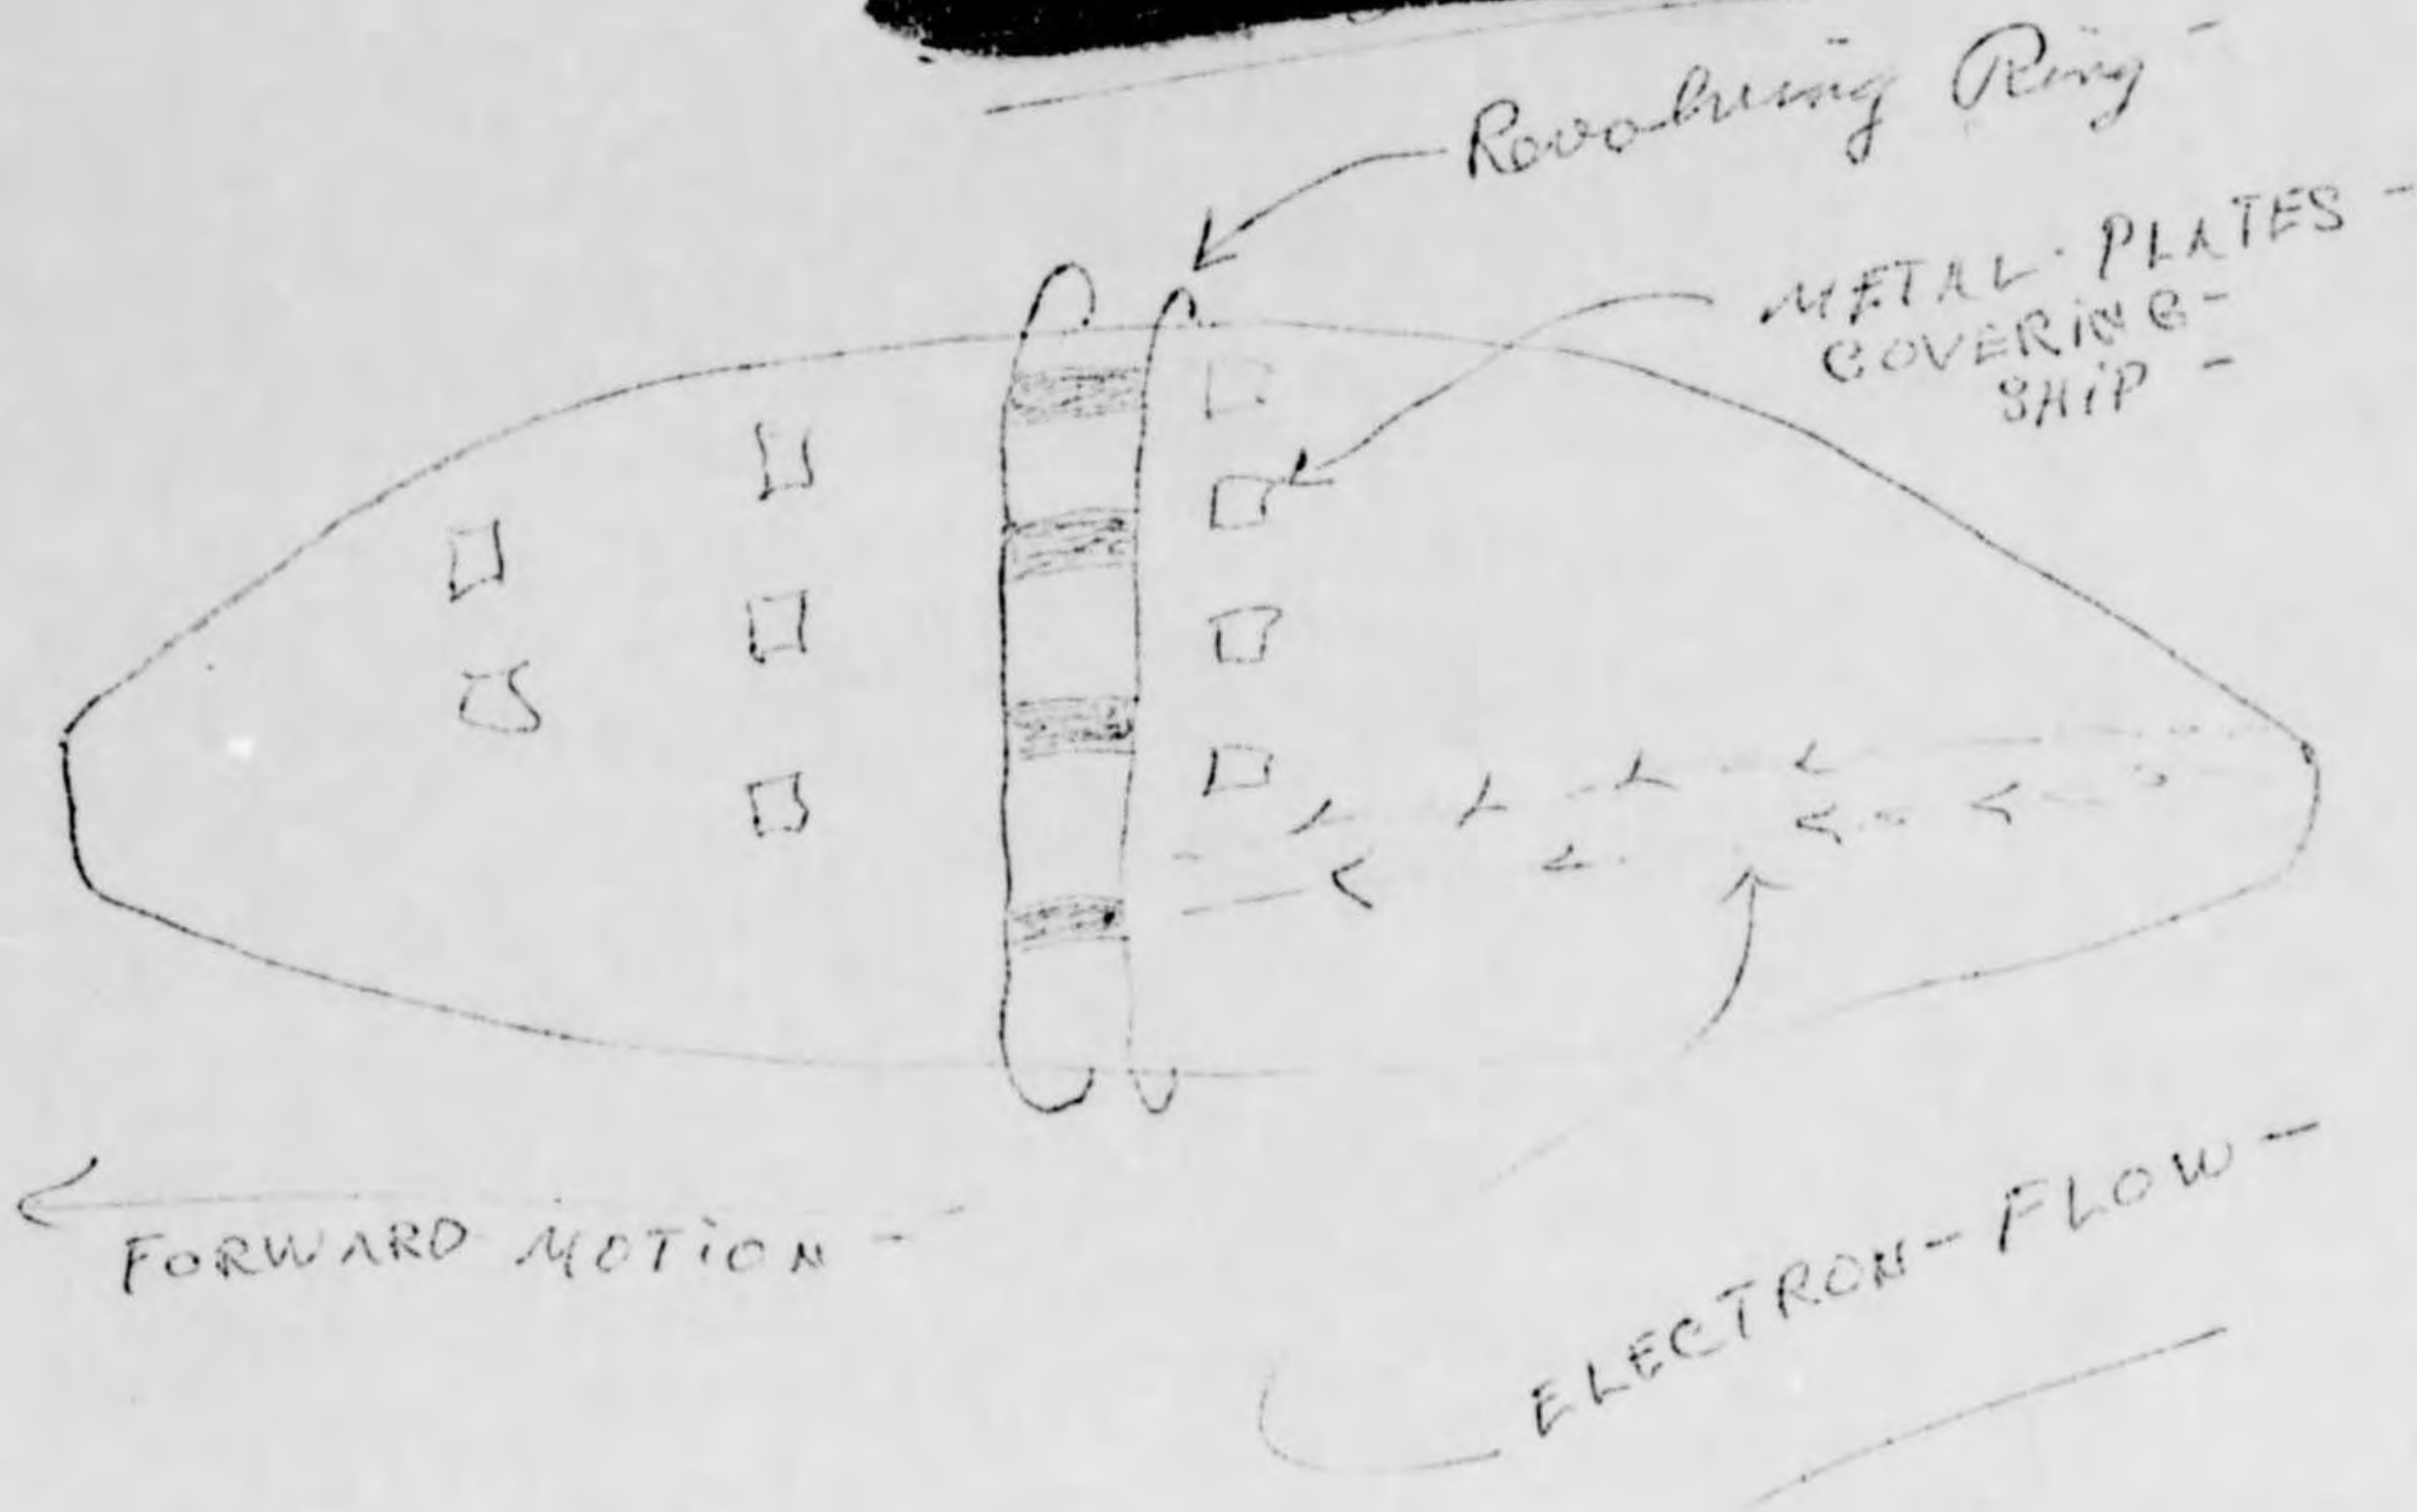 Revolving Ring -
METAL - PLATES -
COVERING -
SHIP -
FORWARD MOTION -
ELECTRON - FLOW -